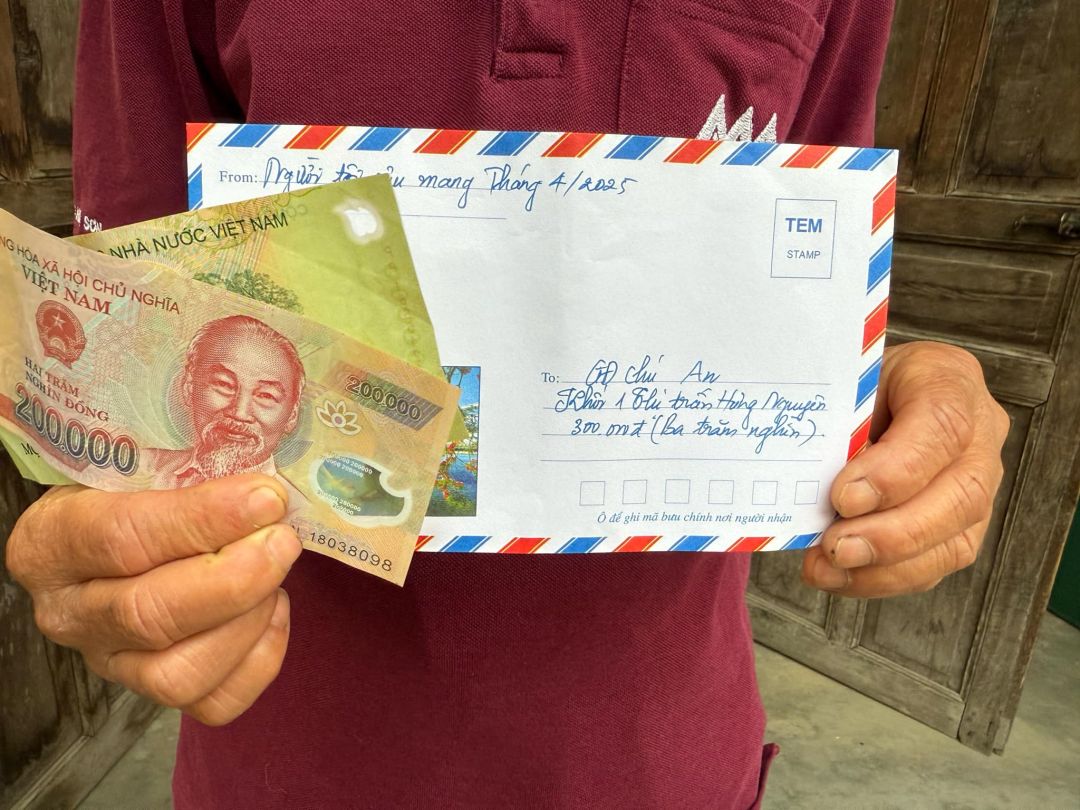 From: Người mang Tháng 4/2025
TEM
STAMP
NHÀ NƯỚC VIỆT NAM
HÒA XÃ HỘI CHỦ NGHĨA
VIỆT NAM
HAI TRĂM
NGHÌN ĐỒNG
200.000
200000
18038098
To: chú An
Khối 1 Thị trấn Hưng Nguyên
300.000đ (ba trăm nghìn).
Ô để ghi mã bưu chính nơi người nhận